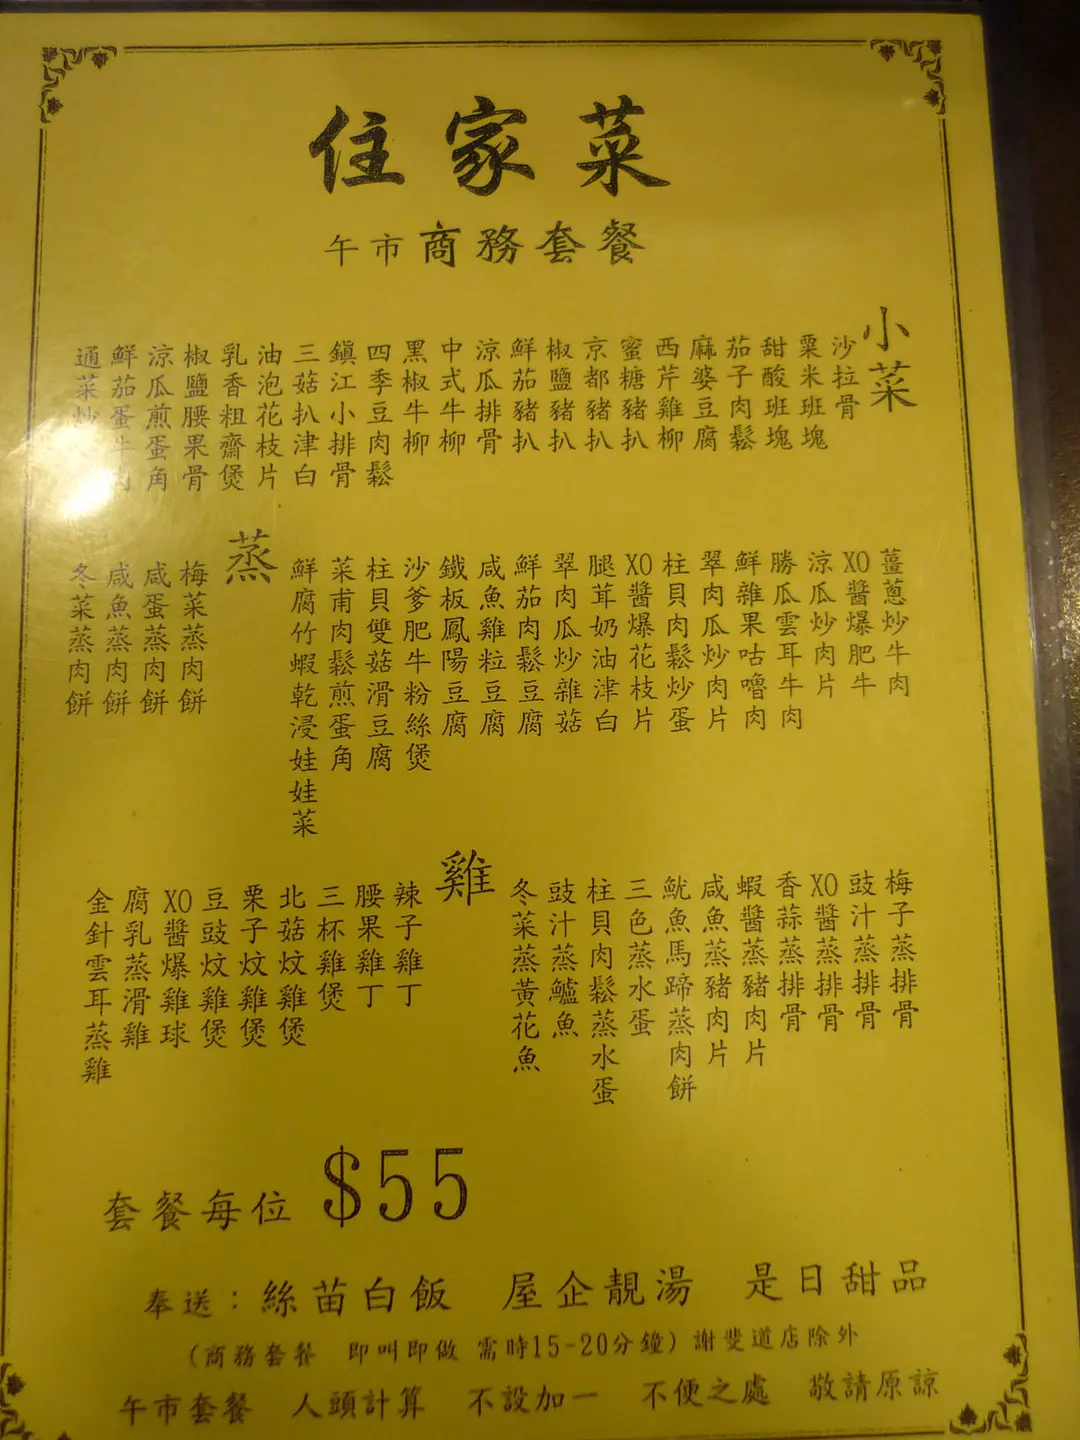 住家菜
午市商務套餐
小菜
沙拉骨
粟米班塊
甜酸班塊
茄子肉鬆
麻婆豆腐
西芹雞柳
蜜糖豬扒
京都豬扒
椒鹽豬扒
鮮茄豬扒
涼瓜排骨
中式牛柳
黑椒牛柳
四季豆肉鬆
鎮江小排骨
三菇扒津白
油泡花枝片
乳香粗齋煲
椒鹽腰果骨
涼瓜煎蛋角
鮮茄蛋牛肉
通菜炒
薑蔥炒牛肉
XO醬爆肥牛
涼瓜炒肉片
勝瓜雲耳牛肉
鮮雜果咕嚕肉
翠肉瓜炒肉片
柱貝肉鬆炒蛋
XO醬爆花枝片
腿茸奶油津白
翠肉瓜炒雜菇
鮮茄肉鬆豆腐
咸魚雞粒豆腐
鐵板鳳陽豆腐
沙爹肥牛粉絲煲
柱貝雙菇滑豆腐
菜甫肉鬆煎蛋角
鮮腐竹蝦乾浸娃娃菜
蒸
梅菜蒸肉餅
咸蛋蒸肉餅
咸魚蒸肉餅
冬菜蒸肉餅
梅子蒸排骨
豉汁蒸排骨
XO醬蒸排骨
香蒜蒸排骨
蝦醬蒸豬肉片
咸魚蒸豬肉片
魷魚馬蹄蒸肉餅
三色蒸水蛋
柱貝肉鬆蒸水蛋
豉汁蒸鱸魚
冬菜蒸黃花魚
雞
辣子雞丁
腰果雞丁
三杯雞煲
北菇炆雞煲
栗子炆雞煲
豆豉炆雞煲
XO醬爆雞球
腐乳蒸滑雞
金針雲耳蒸雞
套餐每位 $55
奉送：絲苗白飯 屋企靚湯 是日甜品
(商務套餐 即叫即做 需時15-20分鐘) 謝斐道店除外
午市套餐 人頭計算 不設加一 不便之處 敬請原諒